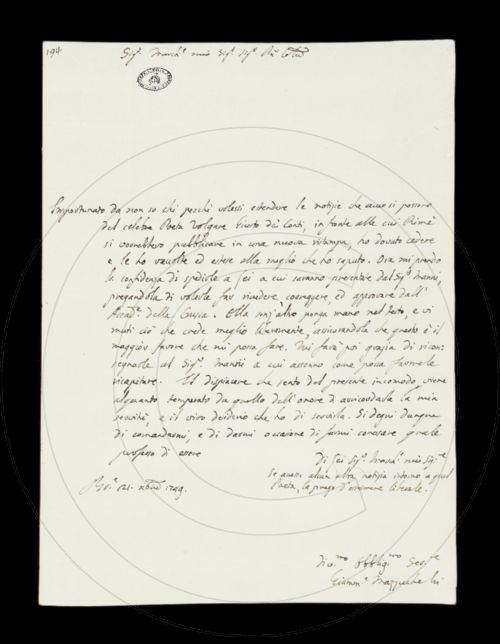 194
Sig.r March.e mio Sig.r Sig.r
Importunato da non so chi perchè volessi estendere le notizie che aver si possono
del celebre Poeta Volgare Giusto dai Conti, in fonte alle cui Rime
si vorrebbero pubblicare in una nuova ristampa, ho dovuto cedere
e le ho raccolte ed estese alla meglio che ho saputo. Ora mi prendo
la confidenza di spedirle a Lei a cui saranno presentate dal Sig.r Manni,
pregandola di volerle far rivedere, correggere, ed approvare dall'
Accad.a della Crusca. Ella senz'altro ponga mano nel testo, e vi
muti ciò che crede meglio liberamente, assicurandola che questo è il
maggior favore che mi possa fare. Mi farà poi grazia di ricon=
segnarle al Sig.r Manni a cui accenno come possa farmele
ricapitare. Il dispiacere che sento del presente incomodo viene
alquanto temperato da quello dell'onore d'assicurarla la mia
servitù, e il vivo desiderio che ho di servirla. Si degni dunque
di comandarmi, e di darmi occasione di farmi conoscere quale
professo di essere
Di Lei Sig.r March.e mio Sig.re
Se avesse alcun'altra notizia intorno a quel
Poeta, la prego d'essermene liberale.
1749.
Div.mo Obblig.mo Ser.re
Giamm.a Mazzuchelli